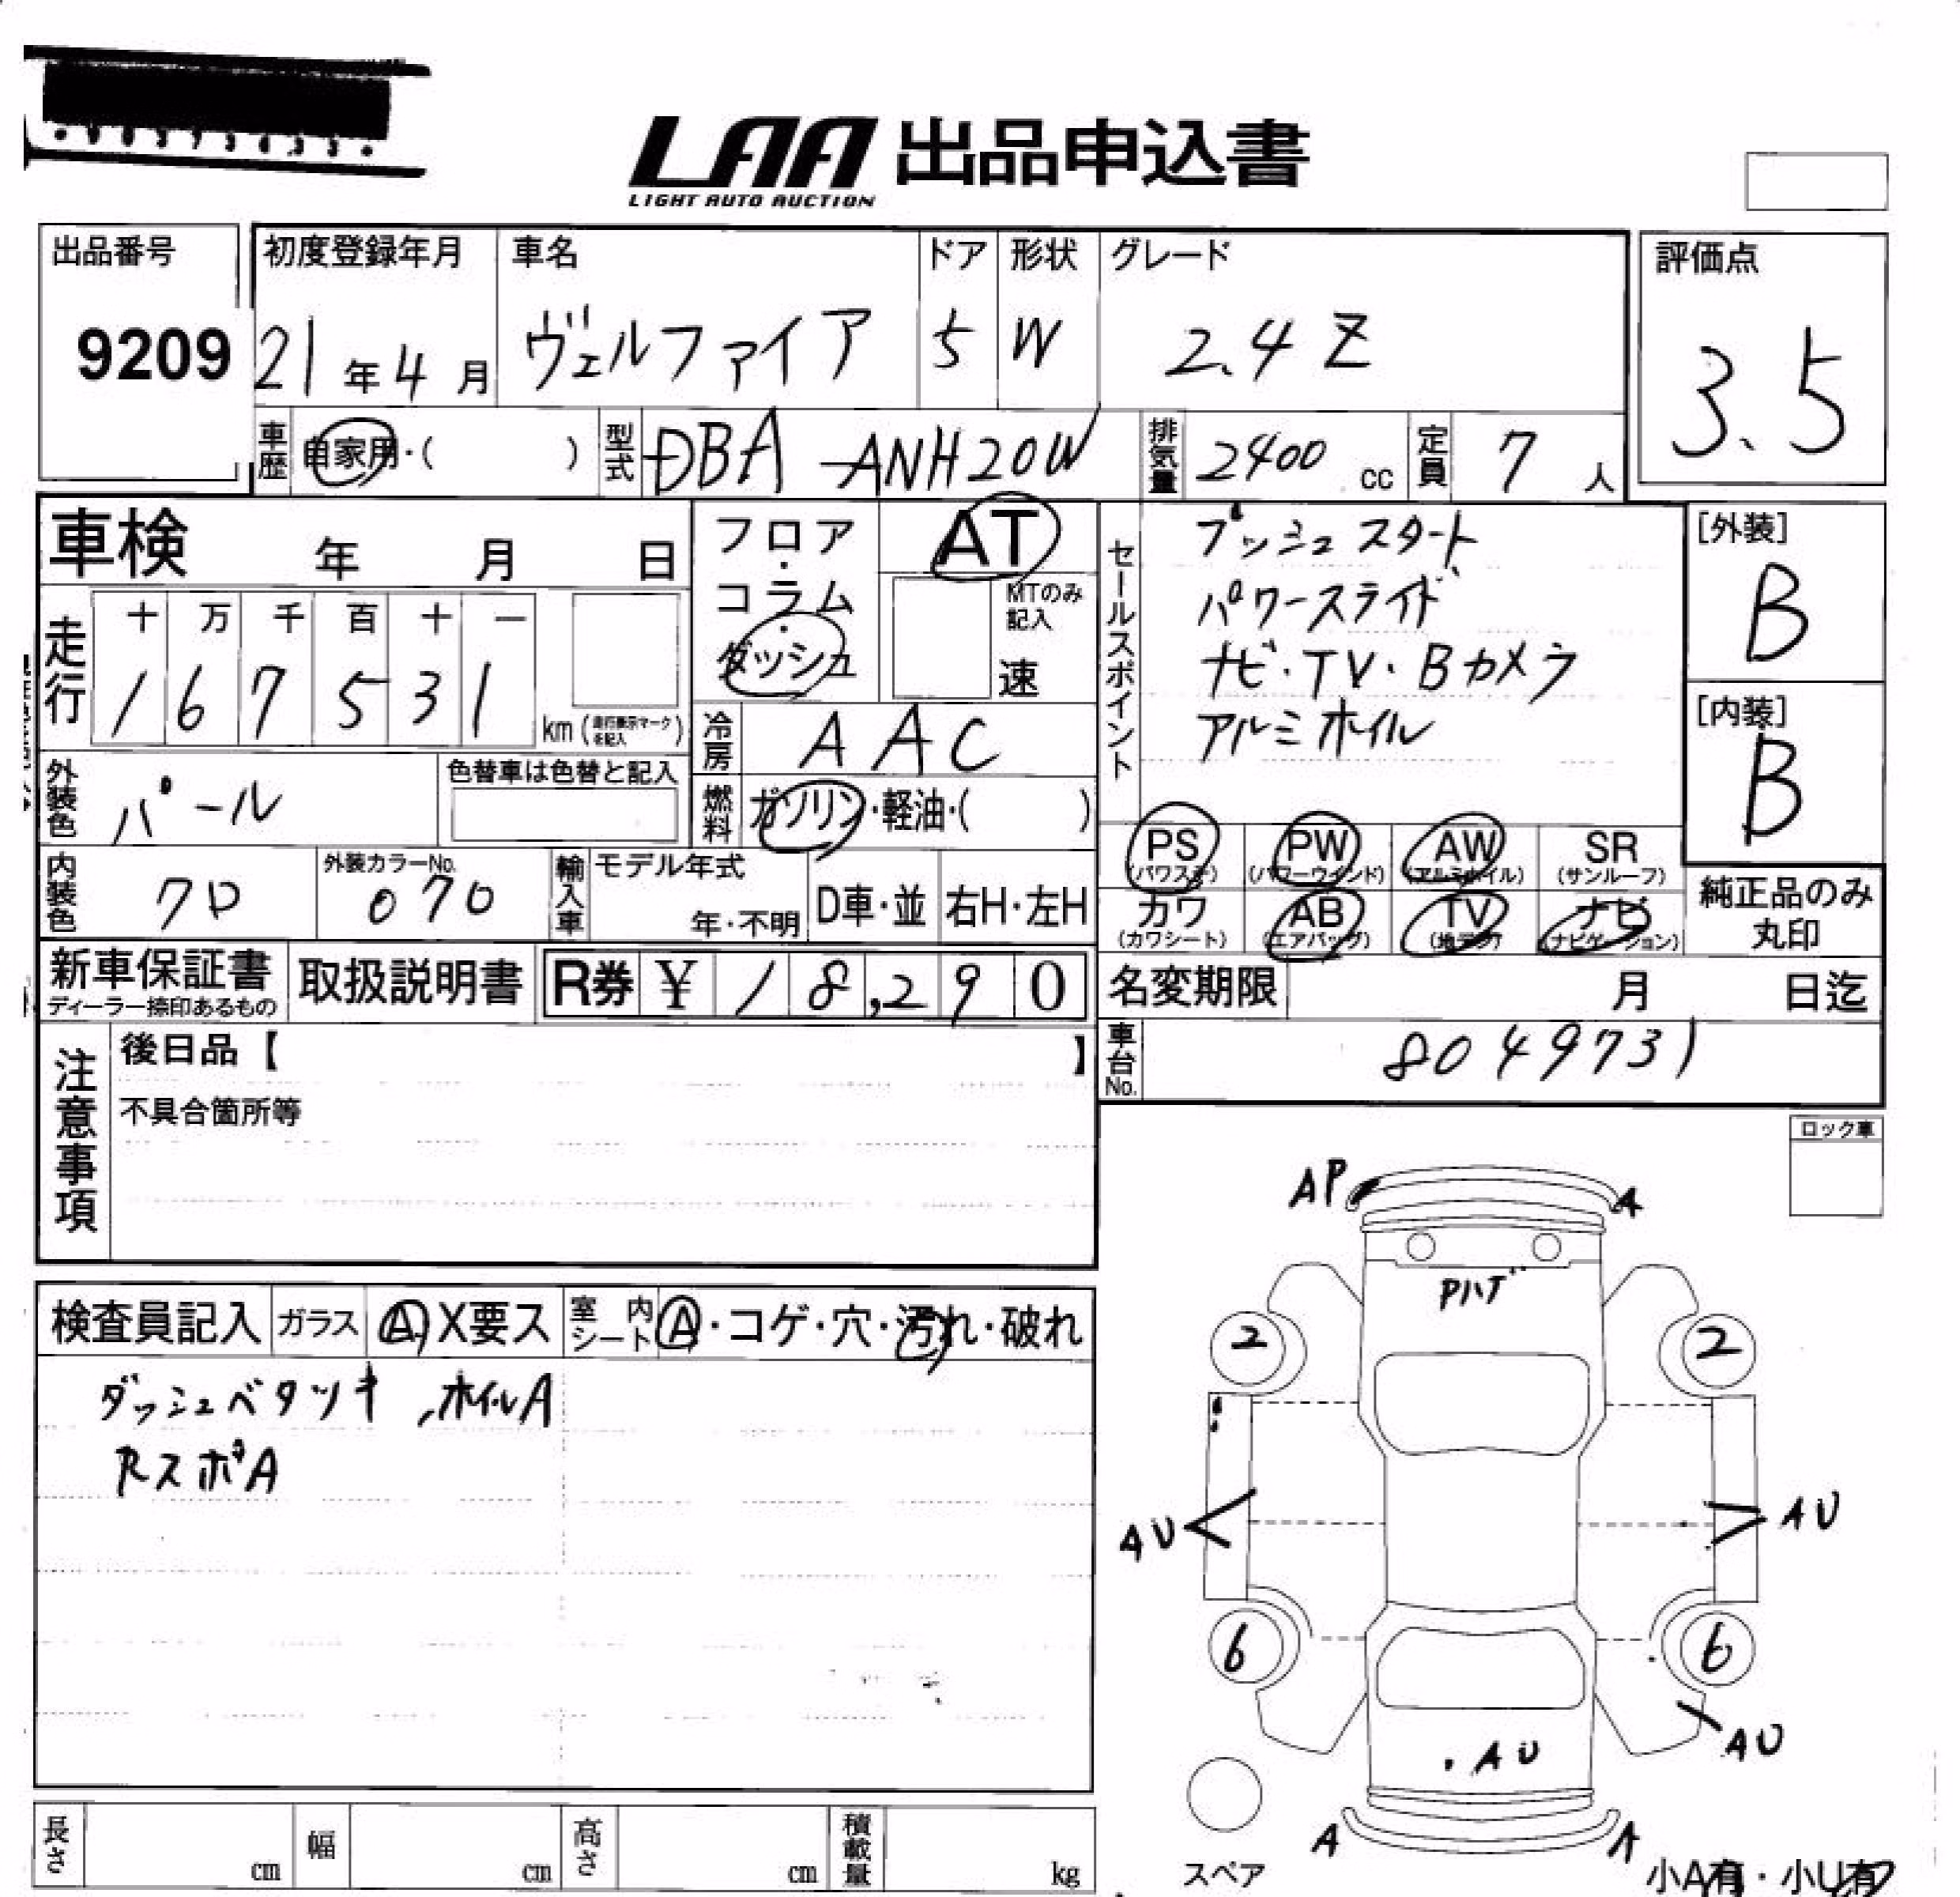 LAA 出品申込書
LIGHT AUTO AUCTION
出品番号
9209
初度登録年月
21年4月
車名
ヴェルファイア
ドア
5
形状
W
グレード
2.4 Z
評価点
3.5
車歴
自家用・( )
型式
DBA-ANH20W
排気量
2400 cc
定員
7 人
車検 年 月 日
走行
十 万 千 百 十 一
1 6 7 5 3 1
km (走行表示マークを記入)
フロア・コラム・ダッシュ
AT
MTのみ記入
速
冷房
AAC
燃料
ガソリン・軽油・( )
外装色
パール
色替車は色替と記入
内装色
クロ
外装カラーNo.
070
輸入車
モデル年式
年・不明
D車・並
右H・左H
セールスポイント
プッシュスタート
パワースライド
ナビ・TV・Bカメラ
アルミホイル
[外装]
B
[内装]
B
PS (パワステ)
PW (パワーウインド)
AW (アルミホイル)
SR (サンルーフ)
カワ (カワシート)
AB (エアバッグ)
TV (地デジ)
ナビ (ナビゲーション)
純正品のみ丸印
新車保証書
ディーラー捺印あるもの
取扱説明書
R券 ¥ 18,290
名変期限 月 日迄
車台No.
8049731
注意事項
後日品【 】
不具合箇所等
ロック車
検査員記入
ガラス
A X要ス
室内シート
A・コゲ・穴・汚れ・破れ
ダッシュベタツキ、ホイルA
RスポA
AP
A
Pハゲ
2
2
AU
AU
6
6
AU
AU
A
A
スペア
小A有・小U有
長さ cm
幅 cm
高さ cm
積載量 kg